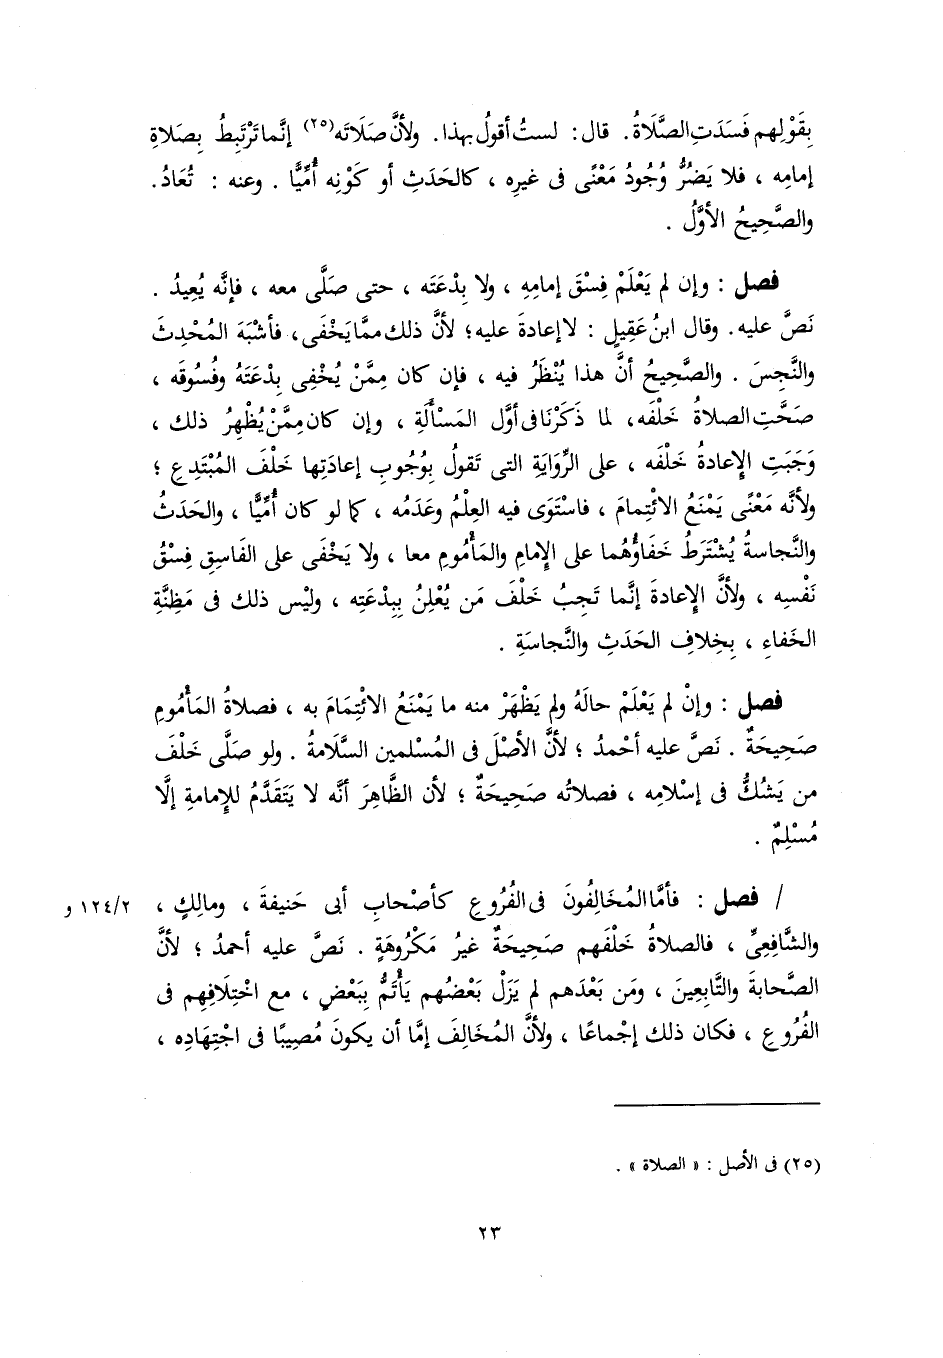 بِقَوْلِهم فَسَدَتِ الصَّلَاةُ. قال: لستُ أقولُ بهذا. ولأنَّ صَلَاتَه(٢٥) إنَّما تَرْتَبِطُ بِصَلاةِ
إمامِه ، فلا يَضُرُّ وُجُودُ مَعْنًى فى غيرِه ، كالحَدَثِ أو كَوْنِه أُمِّيًّا . وعنه : تُعَادُ.
والصَّحِيحُ الأوَّلُ .
فصل : وإن لم يَعْلَمْ فِسْقَ إمامِهِ ، ولا بِدْعَتَه ، حتى صَلَّى معه ، فإنَّه يُعِيدُ .
نَصَّ عليه. وقال ابنُ عَقِيلٍ : لا إعادةَ عليه؛ لأنَّ ذلك ممَّا يَخْفَى، فأشْبَهَ المُحْدِثَ
والنَّجِسَ . والصَّحِيحُ أنَّ هذا يُنْظَرُ فيه ، فإن كان مِمَّنْ يُخْفِى بِدْعَتَهُ وفُسُوقَه ،
صَحَّتِ الصلاةُ خَلْفَه، لما ذَكَرْنَا فى أوَّل المَسْألَةِ ، وإن كان مِمَّنْ يُظْهِرُ ذلك ،
وَجَبَتِ الإِعادةُ خَلْفَه ، على الرِّوَايَةِ التى تَقولُ بِوُجُوبِ إعادَتِها خَلْفَ المُبْتَدِعِ ؛
ولأنَّه مَعْنًى يَمْنَعُ الائْتِمامَ ، فاسْتَوَى فيه العِلْمُ وعَدَمُه ، كما لو كان أُمِّيًّا ، والحَدَثُ
والنَّجاسةُ يُشْتَرَطُ خَفاؤُهُما على الإِمامِ والمَأْمُومِ معا ، ولا يَخْفَى على الفَاسِقِ فِسْقُ
نَفْسِه ، ولأنَّ الإِعادةَ إنَّما تَجِبُ خَلْفَ مَن يُعْلِنُ بِبِدْعَتِه ، وليْس ذلك فى مَظِنَّةِ
الخَفاءِ ، بِخِلافِ الحَدَثِ والنَّجاسَةِ .
فصل : وإنْ لم يَعْلَمْ حالَهُ ولم يَظْهَرْ منه ما يَمْنَعُ الائْتِمَامَ به ، فصلاةُ المَأْمُومِ
صَحِيحَةٌ . نَصَّ عليه أحْمدُ ؛ لأنَّ الأصْلَ فى المُسْلمين السَّلَامةُ . ولو صَلَّى خَلْفَ
من يَشُكُّ فى إسْلامِه ، فصلاتُه صَحِيحَةٌ ؛ لأن الظَّاهِرَ أنَّه لا يَتَقَدَّمُ للإِمامةِ إلَّا
مُسْلِمٌ .
/ فصل : فأمَّا المُخَالِفُونَ فى الفُرُوعِ كأصْحابِ أبى حَنيفةَ ، ومالِكٍ ، ١٢٤/٢ و
والشَّافِعِىِّ ، فالصلاةُ خَلْفَهم صَحِيحَةٌ غيرُ مَكْرُوهَةٍ . نَصَّ عليه أحمدُ ؛ لأنَّ
الصَّحابةَ والتَّابِعِينَ ، ومَن بَعْدَهم لم يَزَلْ بَعْضُهم يَأْتَمُّ بِبَعْضٍ ، مع اخْتِلَافِهِم فى
الفُرُوعِ ، فكان ذلك إجْماعًا ، ولأنَّ المُخَالِفَ إمَّا أن يكونَ مُصِيبًا فى اجْتِهَادِه ،
(٢٥) فى الأصل : « الصلاة » .
٢٣